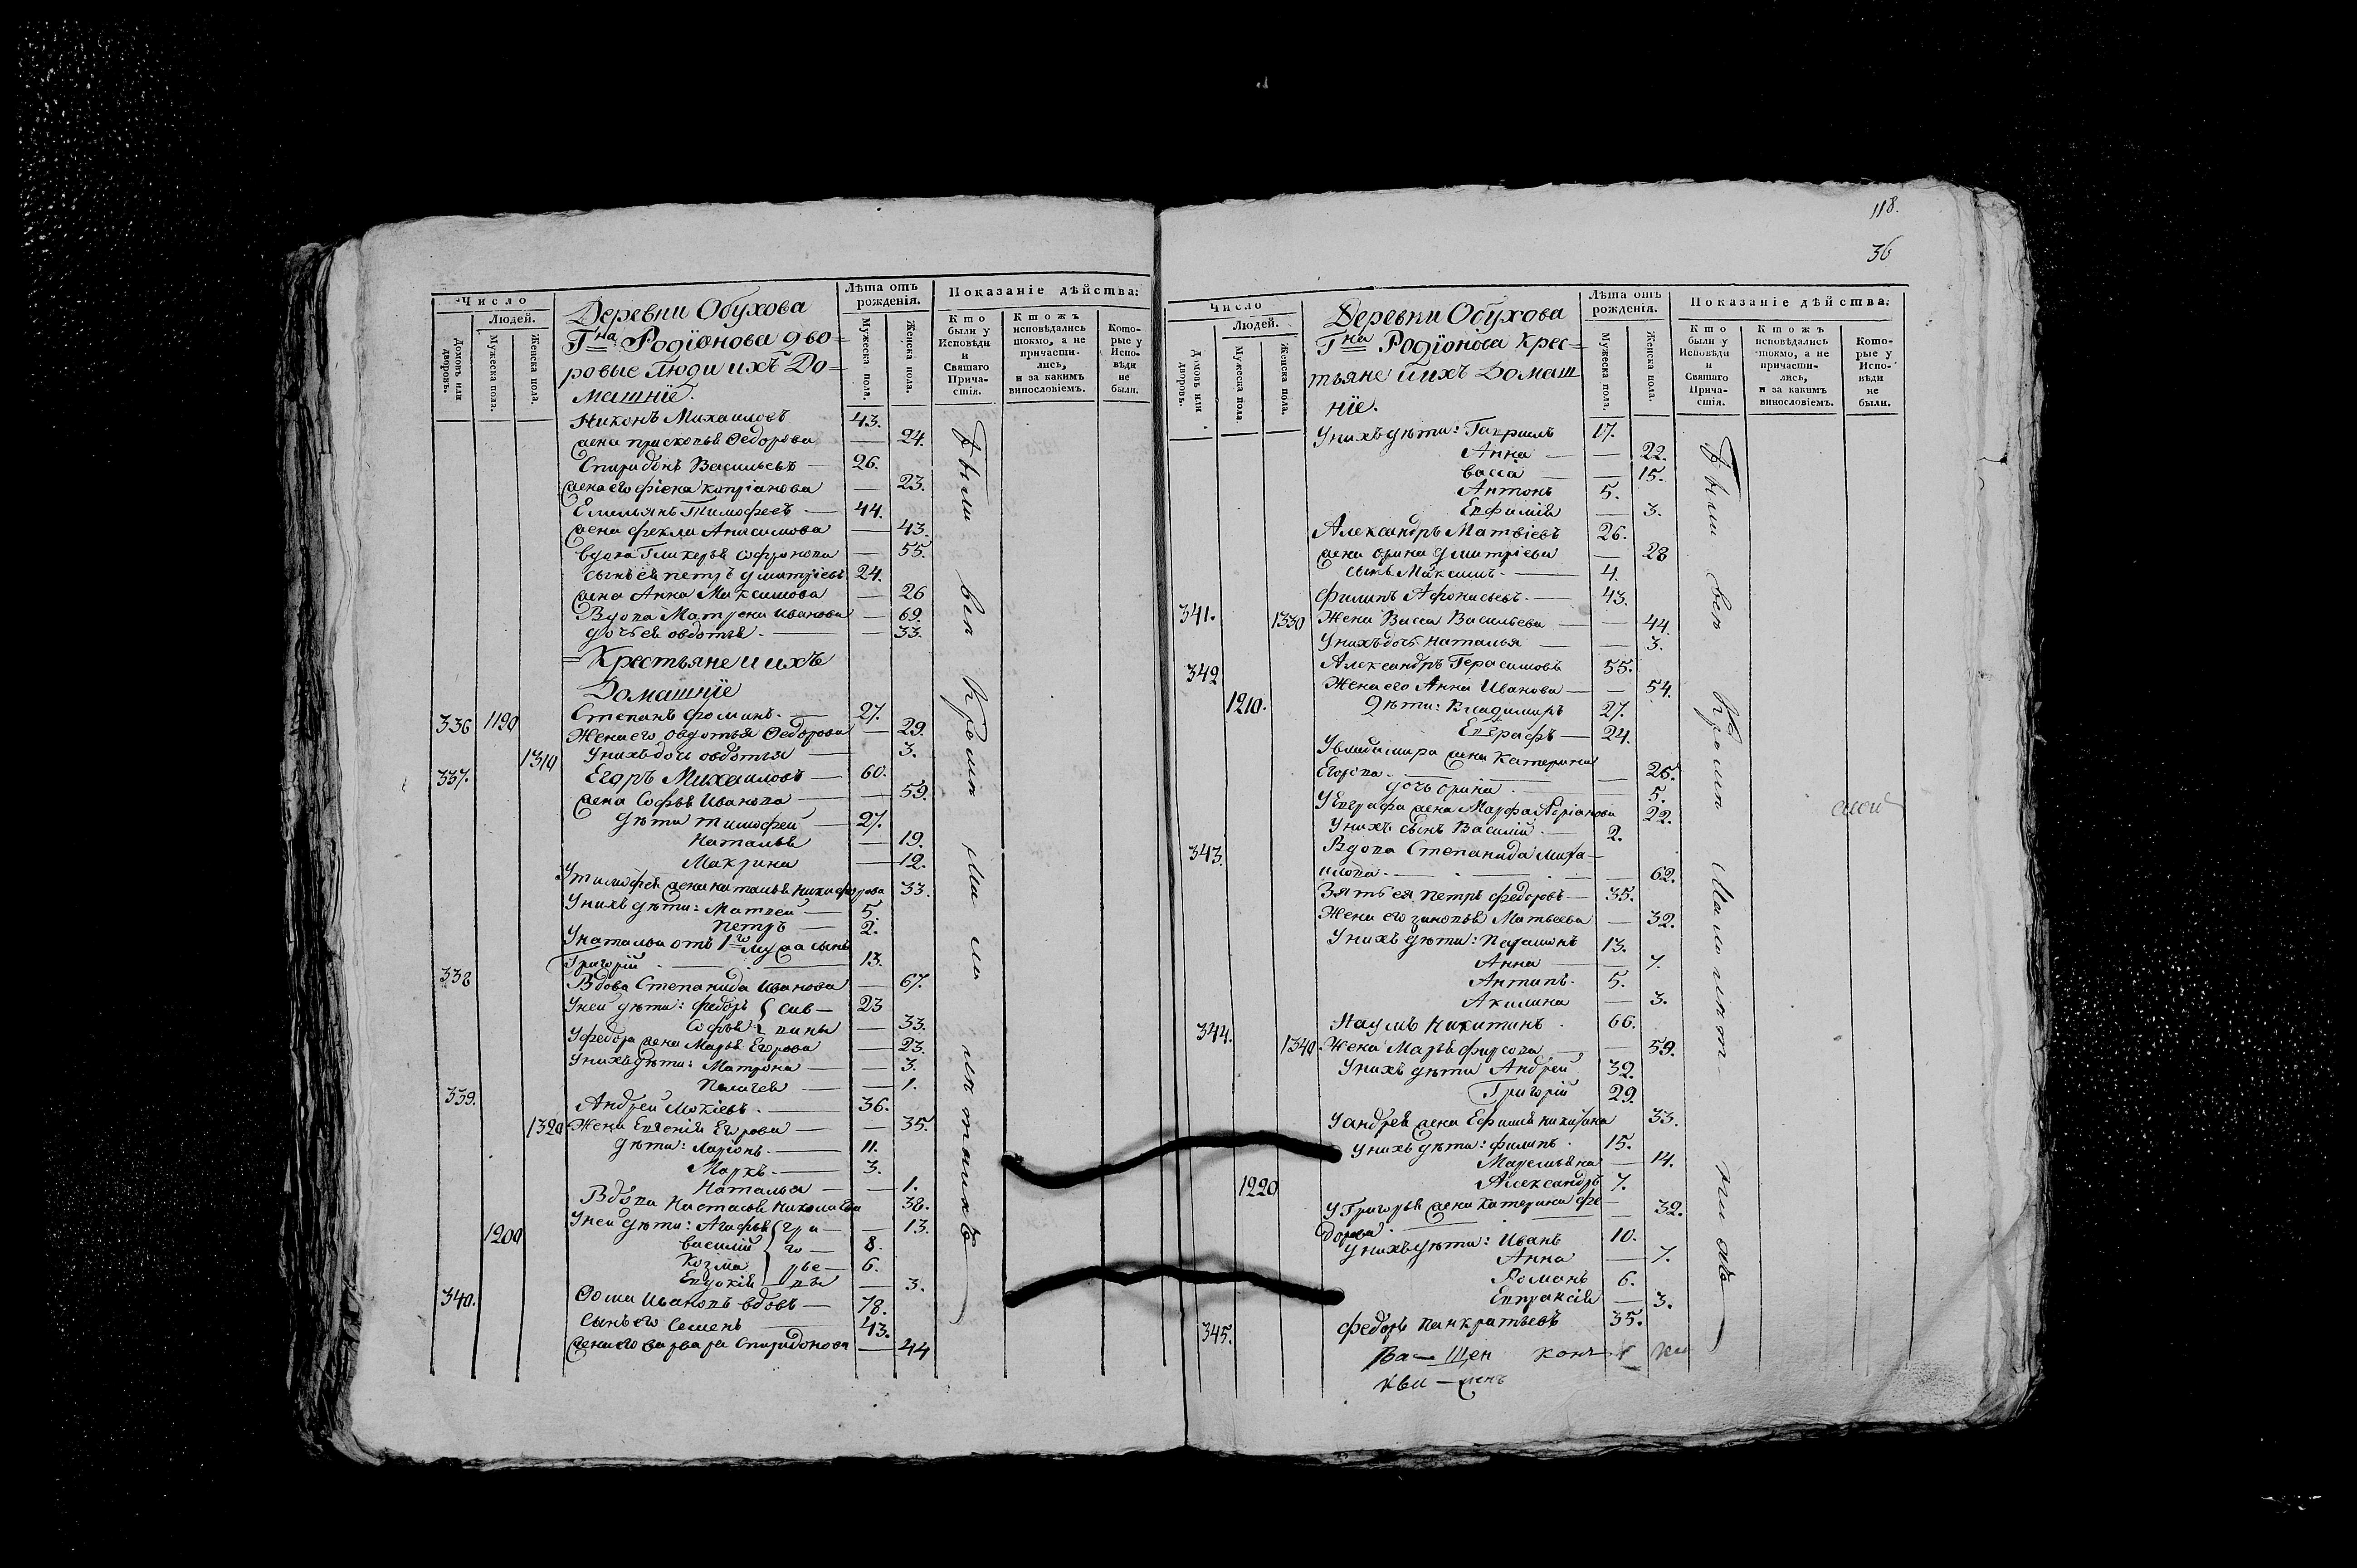 118.
36
Число
Людей.
Домовъ или дворовъ.
Мужеска пола.
Женска пола.
Деревни Обухова
Гна Родіонова дво=
ровые Люди ихъ До=
машніе.
Лѣта отъ рожденія.
Мужеска пола.
Женска пола.
Показаніе дѣйства:
Кто были у Исповѣди и Святаго Причастія.
Ктожъ исповѣдались токмо, а не причастились, и за какимъ винословіемъ.
Которые у Исповѣди не были.
Никонъ Михаиловъ 43.
жена прископья Федорова — 24.
Спиридонъ Васильевъ — 26.
жена его фіона копріанова — 23.
Емельянъ Тимофеевъ — 44.
жена фекла Анисимова — 43.
вдова Гликерья софронова — 55.
сынъ ея петръ дмитріевъ 24.
жена Анна Максимова — 26
Вдова Матрона Иванова — 69.
дочь ея овдотья — 33.
= Крестьяне и ихъ
Домашніе
336 1190 Степанъ фоминъ. — 27.
Жена его Овдотья Федорова — 29.
1310 У нихъ дочь овдотья — 3.
337. Егоръ Михаиловъ — 60.
жена Софья Иванова — 59.
дѣти тимофей — 27.
Наталья — 19.
Макрина — 12.
У тимофея жена наталья никифорова 33.
У нихъ дѣти: Матвей — 5.
петръ — 2.
У натальи отъ 1го мужа сынъ
Григорій — 13.
338 Вдова Степанида Иванова — 67.
У ней дѣти: федоръ { сав — 23
Софья { вины — 33.
У федора жена Марья Егорова — 23.
У нихъ дѣти: Матрона — 3.
Пелагея — 1.
339. Андрей Мокіевъ. — 36.
1320 Жена Евгенія Егорова — 35.
дѣти: Ларіонъ. — 11.
Маркъ. — 3.
Наталья — 1.
Вдова Настасья Николаева 38.
У ней дѣти: Агафья { гри — 13.
1200 василій { го — 8.
Козма { рье — 6.
Евдокія — въ — 3.
340. Фома Ивановъ вдовъ — 78.
сынъ его Семенъ — 43.
жена его варвара Спиридонова — 44
были всѣ Кромѣ малолѣтныхъ
Число
Людей.
Домовъ или дворовъ.
Мужеска пола
Женска пола.
Деревни Обухова
Гна Родіонова Крес=
тьяне и ихъ Домаш
ніе.
Лѣта отъ рожденія.
Мужеска пола.
Женска пола.
Показаніе дѣйства:
Кто были у Исповѣди и Святаго Причастія.
Ктожъ исповѣдались токмо, а не причастились, и за какимъ винословіемъ.
Которые у Исповѣди не были.
У нихъ дѣти: Гавриилъ 17.
Анна — 22.
васса — 15.
Антонъ 5.
Евфимія — 3.
Александръ Матвіевъ 26.
жена орина дмитріева — 28
сынъ Максимъ. — 4.
Филипъ Афонасьевъ. — 43.
341. 1330 Жена Васса Васильева — 44.
У нихъ дочь наталья — 3.
342 Александръ Герасимовъ 55.
Жена его Анна Иванова — 54.
1210. Дѣти: Владимиръ 27.
Евграфъ — 24.
У владимира жена катерина
Егорова. — 26.
дочь орина. — 5.
У Евграфа жена Марфа Адріанова 22.
У нихъ сынъ Василій. — 2.
343. Вдова Степанида миха—
илова. — 62.
Зять ея петръ федоровъ — 35.
Жена его зиновья Матвеева — 32.
У нихъ дѣти: парамонъ 13.
Анна — 7.
Антипъ. 5.
Акилина — 3.
344. Наумъ Никитинъ. 66.
1340 Жена Марья фирсова — 59.
У нихъ дѣти Андрей 32.
Григорій 29.
У андрея жена Ефимия никитина 33.
У нихъ дѣти: филипъ. 15.
Маремьяна — 14.
1220 Александръ 7.
У Григорья жена катерина фе — 32.
дорова.
У нихъ дѣти: Иванъ 10.
Анна — 7.
Романъ 6.
Евпраксія — 3.
345. Федоръ панкратьевъ 35.
были всѣ Кромѣ Малолѣтныхъ